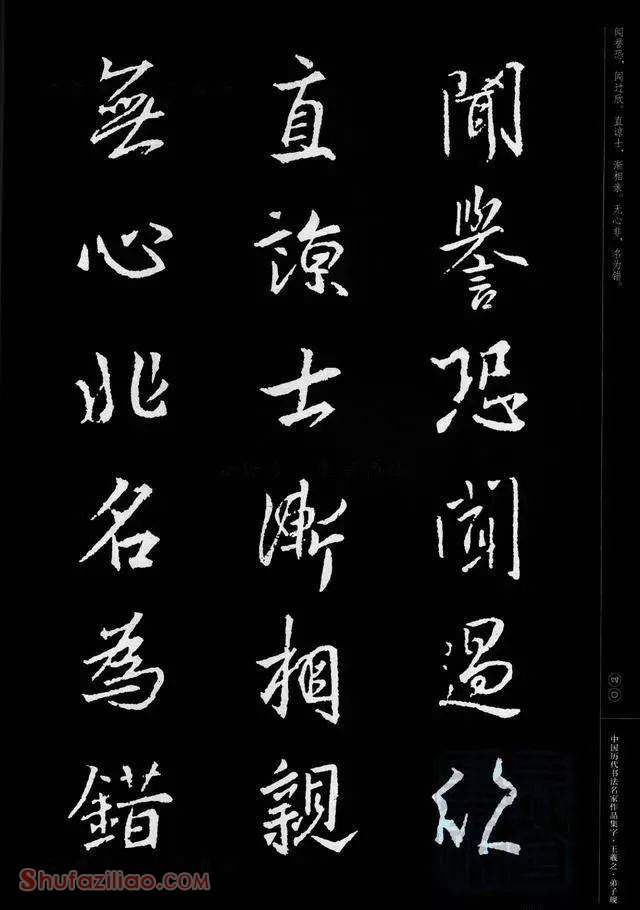 聞譽恐聞過欣
直諒士漸相親
無心非名為錯
闻誉恐，闻过欣。直谅士，渐相亲。无心非，名为错。
四〇
中国历代书法名家作品集字·王羲之·弟子规
Shufaziliao.com